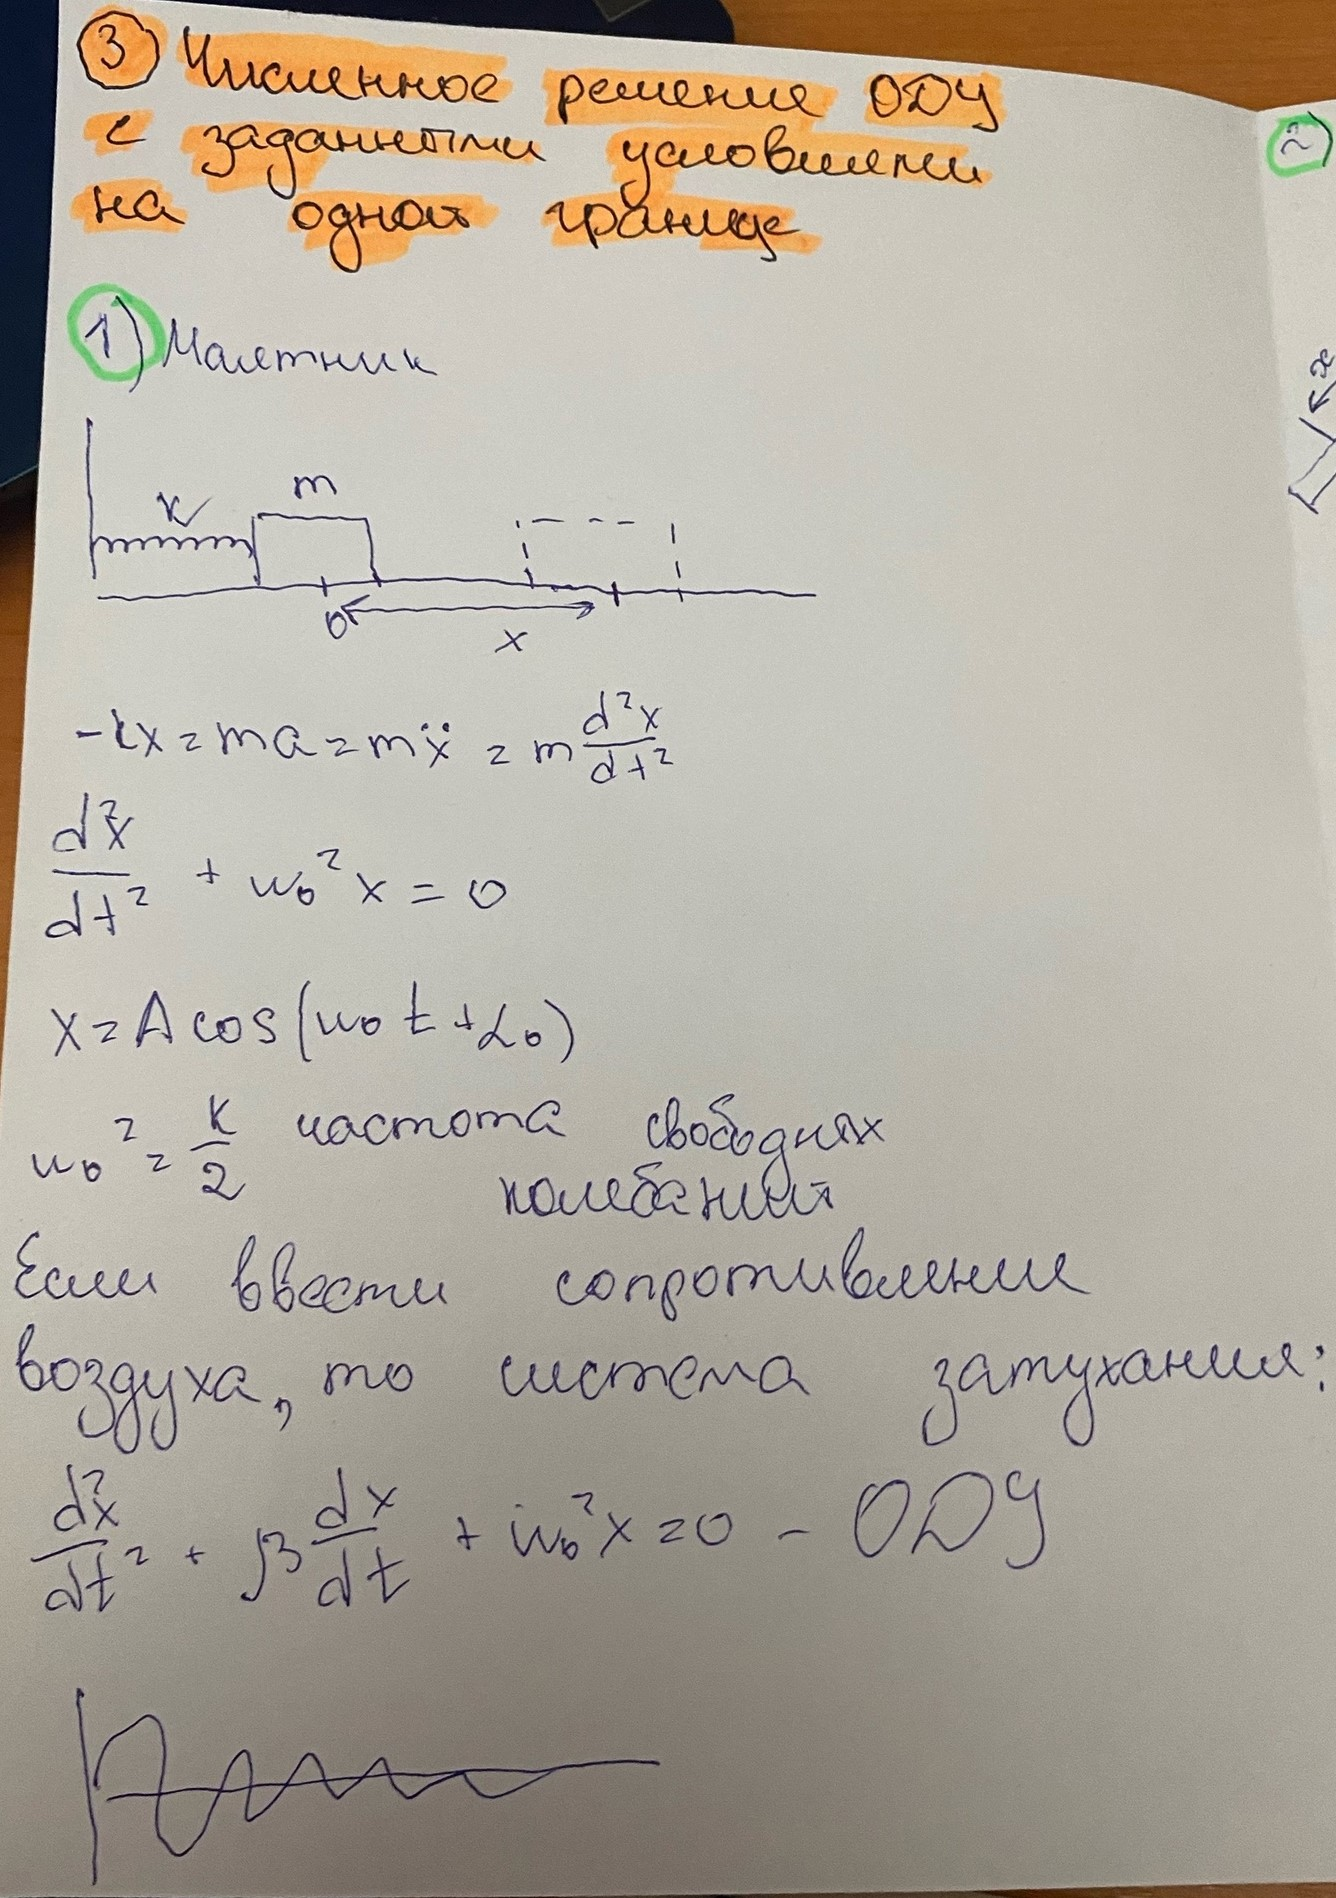 3 Численное решение ОДУ
с заданными условиями
на одной границе
1) Маятник
k
m
0
x
-kx = ma = mẍ = m d²x/dt²
d²x/dt² + ω₀²x = 0
x = A cos(ω₀t + α₀)
ω₀² = k/2 частота свободных
колебаний
Если ввести сопротивление
воздуха, то система затухания:
d²x/dt² + β dx/dt + ω₀²x = 0 - ОДУ
2)
x